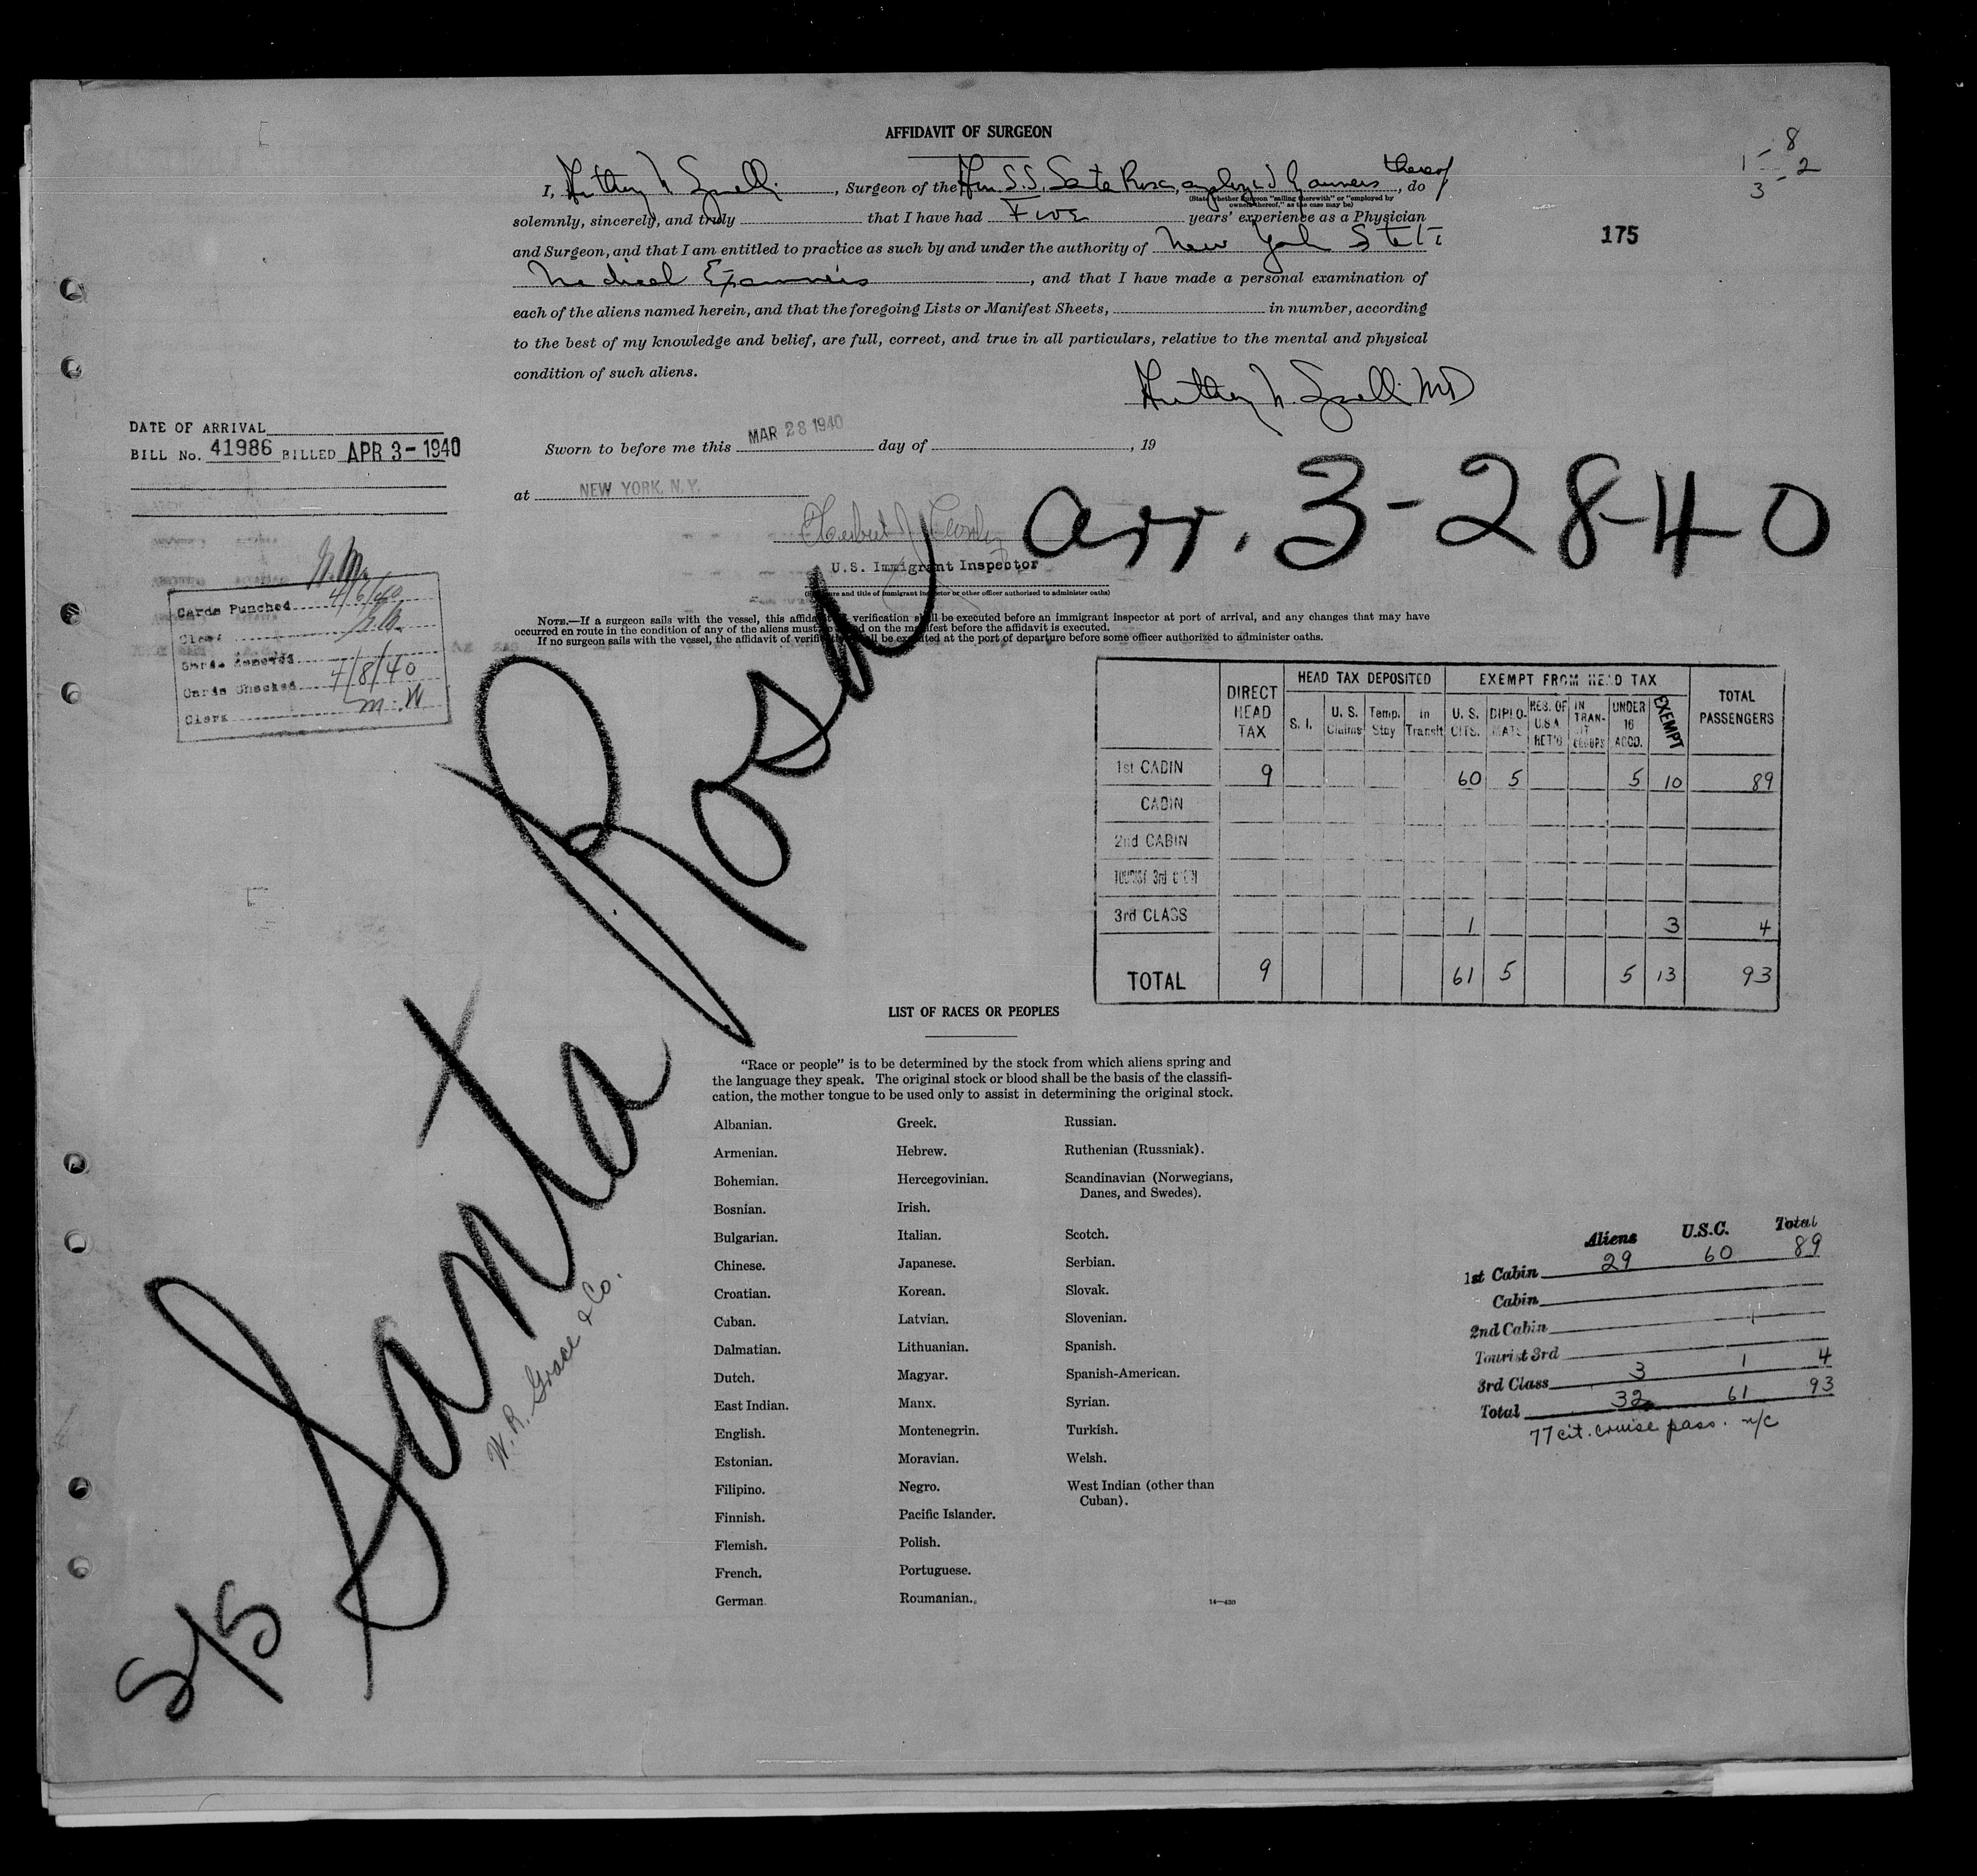 AFFIDAVIT OF SURGEON
1 - 8
3 - 2
175
I, , Surgeon of the S.S. Santa Rosa, thereof, do
(State whether Surgeon "sailing therewith" or "employed by
owners thereof," as the case may be)
solemnly, sincerely, and truly that I have had Five years' experience as a Physician
and Surgeon, and that I am entitled to practice as such by and under the authority of New York State
Medical Examiners, and that I have made a personal examination of
each of the aliens named herein, and that the foregoing Lists or Manifest Sheets, in number, according
to the best of my knowledge and belief, are full, correct, and true in all particulars, relative to the mental and physical
condition of such aliens.
MD
DATE OF ARRIVAL
BILL No. 41986 BILLED APR 3 - 1940
Sworn to before me this MAR 28 1940 day of , 19
at NEW YORK, N.Y.
arr. 3-28-40
U.S. Immigrant Inspector
(Signature and title of immigrant inspector or other officer authorized to administer oaths)
Cards Punched 4/6/40
Clerk
Cards Removed
Cards Checked 4/8/40
Clerk M. W
NOTE.—If a surgeon sails with the vessel, this affidavit verification shall be executed before an immigrant inspector at port of arrival, and any changes that may have
occurred en route in the condition of any of the aliens must on the manifest before the affidavit is executed.
If no surgeon sails with the vessel, the affidavit of verification shall be executed at the port of departure before some officer authorized to administer oaths.
DIRECT HEAD TAX HEAD TAX DEPOSITED EXEMPT FROM HEAD TAX TOTAL PASSENGERS
S. I. U. S. Claims Temp. Stay In Transit U. S. CITS. DIPLOMATS RES. OF U.S.A. RET'G IN TRANSIT GROUPS UNDER 16 ACCD. EXEMPT
1st CABIN 9 60 5 5 10 89
CABIN
2nd CABIN
TOURIST 3rd CABIN
3rd CLASS 1 3 4
TOTAL 9 61 5 5 13 93
S/S Santa Rosa
W. R. Grace & Co.
LIST OF RACES OR PEOPLES
"Race or people" is to be determined by the stock from which aliens spring and
the language they speak. The original stock or blood shall be the basis of the classifi-
cation, the mother tongue to be used only to assist in determining the original stock.
Albanian.
Armenian.
Bohemian.
Bosnian.
Bulgarian.
Chinese.
Croatian.
Cuban.
Dalmatian.
Dutch.
East Indian.
English.
Estonian.
Filipino.
Finnish.
Flemish.
French.
German.
Greek.
Hebrew.
Hercegovinian.
Irish.
Italian.
Japanese.
Korean.
Latvian.
Lithuanian.
Magyar.
Manx.
Montenegrin.
Moravian.
Negro.
Pacific Islander.
Polish.
Portuguese.
Roumanian.
Russian.
Ruthenian (Russniak).
Scandinavian (Norwegians,
Danes, and Swedes).
Scotch.
Serbian.
Slovak.
Slovenian.
Spanish.
Spanish-American.
Syrian.
Turkish.
Welsh.
West Indian (other than
Cuban).
14—430
Aliens U.S.C. Total
1st Cabin 29 60 89
Cabin
2nd Cabin
Tourist 3rd
3rd Class 3 1 4
Total 32 61 93
77 cit. cruise pass. n/c